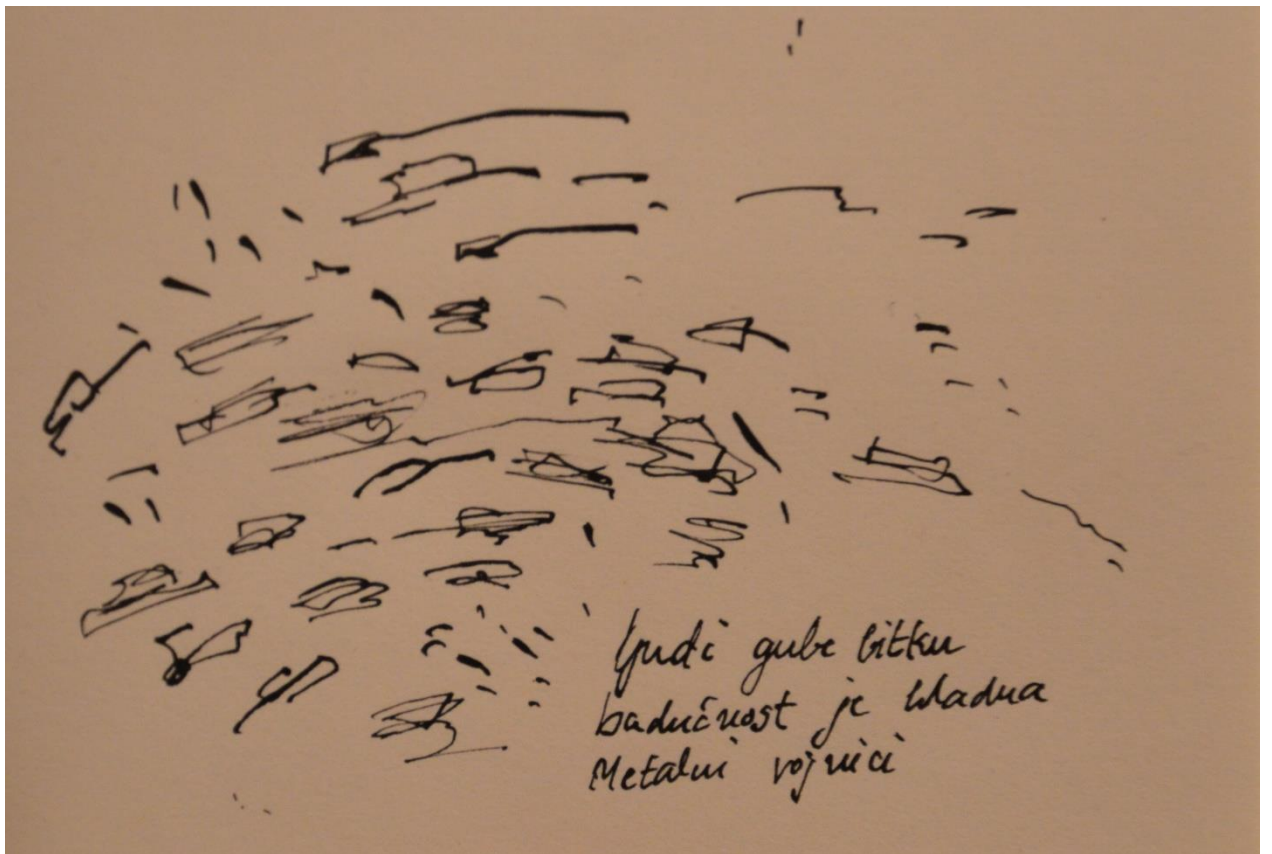 ljudi gube bitku
budućnost je hladna
Metalni vojnici